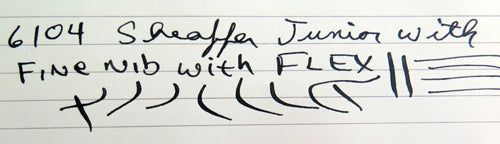 6104 Sheaffer Junior with
FINE NIB with FLEX